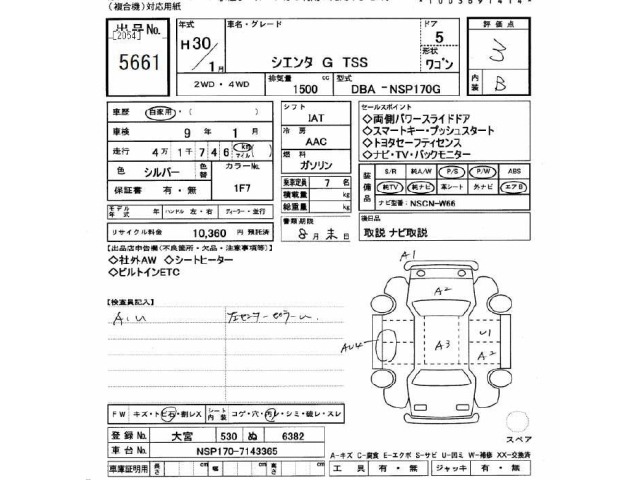 (複合機)対応用紙
出品No.
[2054]
5661
年式
H30/1月
車名・グレード
シエンタ G TSS
ドア
5
形状
ワゴン
2WD・4WD
排気量
1500 cc
型式
DBA-NSP170G
評価点
内装
B
車歴 自家用・( )
車検 9年 1月
走行 4万1千746 km マイル
色 シルバー
色替
カラーNo.
1F7
保証書 有・無
モデル年式 年 ハンドル 左・右 ディーラー・並行
リサイクル料金 10,360 円 預託済
シフト
IAT
冷房
AAC
燃料
ガソリン
乗車定員 7 名
積載量 kg
総重量 kg
書類期限
8月末日
セールスポイント
◇両側パワースライドドア
◇スマートキー・プッシュスタート
◇トヨタセーフティセンス
◇ナビ・TV・バックモニター
装備品
S/R 純A/W P/S P/W ABS
純TV 純ナビ 革シート 外ナビ エアB
ナビ型番: NSCN-W66
後日品
取説 ナビ取説
【出品店申告欄(不良箇所・欠品・注意事項等)】
◇社外AW ◇シートヒーター
◇ビルトインETC
【検査員記入】
A.U
左センターピラーU
A1
A2
A3
U1
A2
AU4
FW キズ・トビ石・割レX
シート内装 コゲ・穴・汚レ・シミ・破レ・スレ
スペア
登録No. 大宮 530 ぬ 6382
車台No. NSP170-7143365
車庫証明用 長さ cm 幅 cm 高さ cm
A-キズ C-腐食 E-エクボ S-サビ U-凹ミ W-補修 XX-交換済
工具 有・無 ジャッキ 有・無